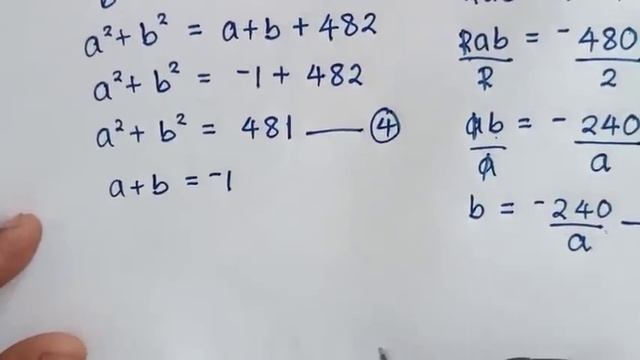 a² + b² = a + b + 482
a² + b² = -1 + 482
a² + b² = 481 —— ④
a + b = -1
2ab/2 = -480/2
ab/a = -240/a
b = -240/a —